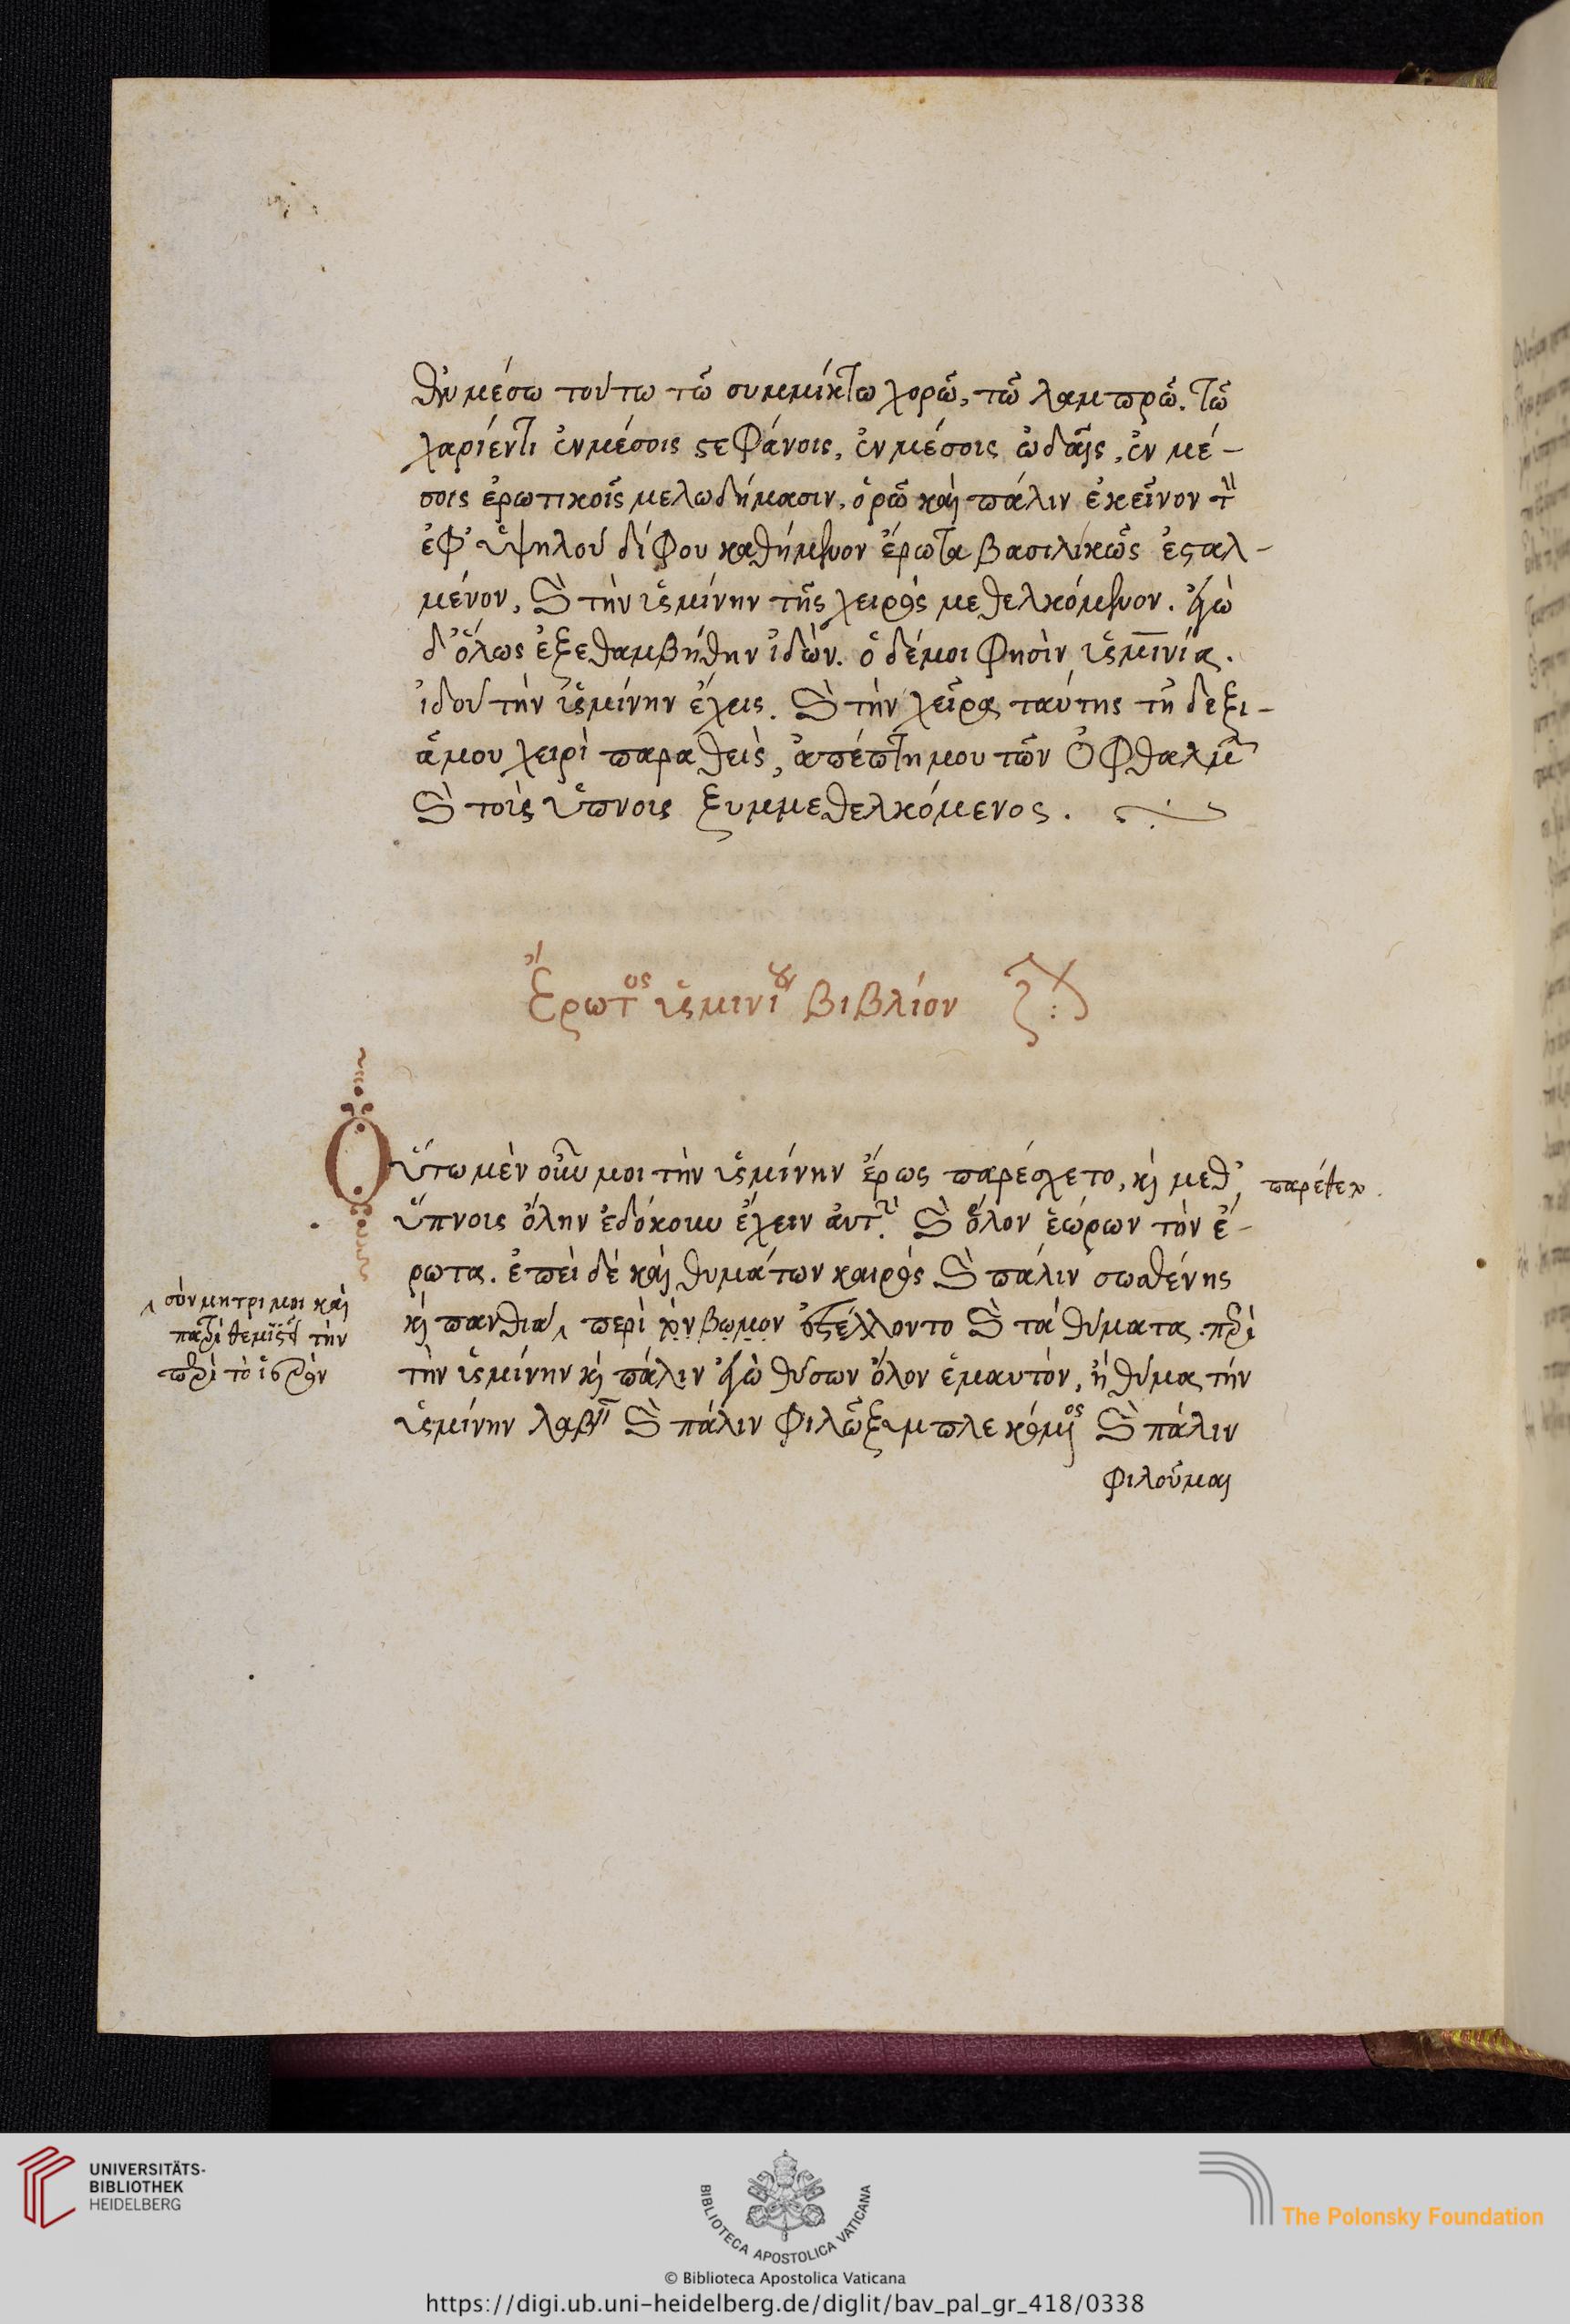 ἐν μέσω τούτω τῶ συμμίκτω χορῶ, τῶ λαμπρῶ. τῶ
χαρίεντι ἐν μέσοις στεφάνοις, ἐν μέσοις ὠδαῖς, ἐν μέ-
σοις ἐρωτικοῖς μελωδήμασιν, ὁρῶ καὶ πάλιν ἐκεῖνον τὸν
ἐφ' ὑψηλοῦ δίφου καθήμενον ἔρωτα βασιλικῶς ἐσταλ-
μένον, καὶ τὴν ὑσμίνην τῆς χειρὸς μεθελκόμενον. ἐγὼ
δ' ὅλως ἐξεθαμβήθην ἰδὼν. ὁ δέ μοι φησὶν ὑσμινία.
ἰδοὺ τὴν ὑσμίνην ἔχεις. καὶ τὴν χεῖρα ταύτης τῆ δεξι-
ᾶ μου χειρὶ παραθεὶς, ἀπέπτη μου τῶν ὀφθαλμῶν
καὶ τοῖς ὕπνοις ξυμμεθελκόμενος.
Ἔρωτος ὑσμινίου βιβλίον
Οὕτω μὲν οὖν μοι τὴν ὑσμίνην ἔρως παρέσχετο, καὶ μεθ'
παρέθετο.
ὕπνοις ὅλην ἐδόκουν ἔχειν αὐτὴν. καὶ ὅλον ἑώρων τὸν ἔ-
ρωτα. ἐπεὶ δὲ καὶ θυμάτων καιρὸς καὶ πάλιν σωσθένης
σὺν μητρί μοι καὶ
πατρὶ θεμιστεῖ τὴν
περὶ τὸ ἱερὸν
καὶ πανθία περὶ τὸν βωμὸν ἐστέλλοντο καὶ τὰ θύματα. περὶ
τὴν ὑσμίνην καὶ πάλιν ἐγὼ θύσων ὅλον ἐμαυτόν, ἢ θῦμα τὴν
ὑσμίνην λαβεῖν καὶ πάλιν φιλῶ ξυμπλεκόμενος καὶ πάλιν
φιλοῦμαι
UNIVERSITÄTS-
BIBLIOTHEK
HEIDELBERG
BIBLIOTECA APOSTOLICA VATICANA
The Polonsky Foundation
© Biblioteca Apostolica Vaticana
https://digi.ub.uni-heidelberg.de/diglit/bav_pal_gr_418/0338